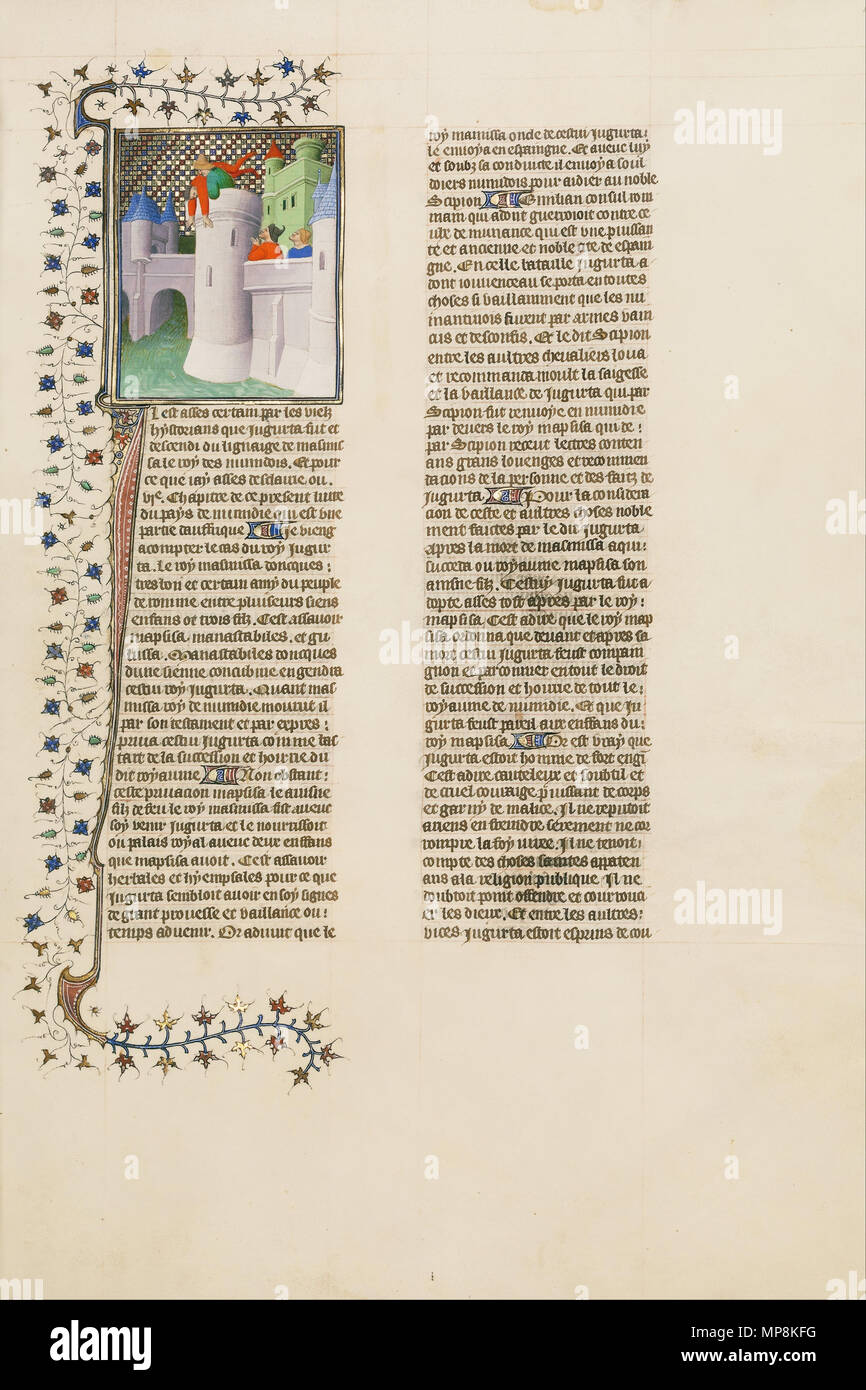 Il est asses certain par les vielz
hystorians que Jugurta fut et
descendi du lignaige de masinis
sa le roy des numidois. Et pour
ce que iay asses desclaire ou.
vie. Chapitre de ce present liure
du pays de numidie qui est une
partie dauffrique Je vieng
a compter le cas du roy Jugur
ta. Le roy masinissa doncques:
tres bon et certain amy du peuple
de romme entre pluiseurs siens
enfans ot trois filz. Cest assauoir
mapsisa manastabiles. et gu
lussa. Manastabiles doncques
dune sienne concubine engendra
cestui roy Jugurta. Quant mas
nissa roy de numidie mourut il
par son testament et par expres:
priua cestui Jugurta comme bas
tart de la succession et hoirie du
dit royaume Non obstant:
ceste priuacion mapsisa le ainsne
filz de feu le roy masinissa fist auec
soy venir Jugurta et le nourrissoit
ou palais royal auec deux enffans
que mapsisa auoit. Cest assauoir
herbales et hyempsales pour ce que
Jugurta sembloit auoir en soy signes
de grant prouesse et vaillance ou:
temps aduenir. Or aduint que le
roy mamissa oncle de cestui Jugurta:
le enuoya en espaingne. Et auec luy
et soubz sa conduicte il enuoya soul
doiers numidois pour aidier au noble
Scipion Emilian consul rom
main qui adont guerroioit contre ce
ite de numance qui est vne puissan
te et ancienne et noble cite de espain
gne. En celle bataille Jugurta a
dont iouuenceau se porta en toutes
choses si vaillamment que les nu
mantinois furent par armes vain
cus et desconfis. Et le dit Scipion
entre les aultres cheualiers loua
et recommanda moult la saigesse
et la vaillance de Jugurta qui par
Scipion fut renuoye en numidie
par deuers le roy mapsisa qui de:
par Scipion receut lectres conten
ans grans louenges et recommen
dacions de la personne et des faitz de
Jugurta Pour la considera
cion de ceste et aultres choses noble
ment faictes par le dit Jugurta
apres la mort de masinissa a qui:
succeda ou royaume mapsisa son
ainsne filz. Cestuy Jugurta fut a
dopte asses tost apres par le roy:
mapsisa. Cest adire que le roy map
sisa ordonna que deuant et apres sa
mort cestui Jugurta feust compain
gnon et parconnier en tout le droit
de succession et hoirie de tout le:
royaume de numidie. Et que Ju
gurta feust pareil aux enffans du:
roy mapsisa Or est vray que
Jugurta estoit homme de fort engi
Cest adire cauteleux et soubtil et
de cruel couraige puissant de corps
et garny de malice. Il ne reputoit
a riens enfreindre serement ne cor
rompre la foy iuree. Il ne tenoit:
compte des choses saintes aparten
ans a la religion publique Il ne
doubtoit point offendre et courrouci
er les dieux. Et entre les aultres:
vices Jugurta estoit esprins de cou
alamy
a
alamy stock photo
Image ID: MP8KFG
www.alamy.com